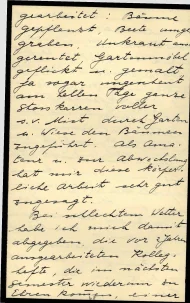 gearbeitet: Bäume
gepflanzt, Beete umge
graben, Unkraut aus
gereutet, Gartenmöbel
geflickt u. gemalt,
Ja sogar
am selben Tage ganze
Stosskarren voller
s. v. Mist durch Garten
u. Wiese den Bäumen
zugeführt. Als Ama
teur u. zur Abwechslung
hat mir diese körper
liche Arbeit sehr gut
zugesagt.
Bei schlechtem Wetter
habe ich mich damit
abgegeben, die vor Jahren
ausgearbeiteten Kolleg
hefte, die im nächsten
Semester wiederum zu
Ehren kommen, einer